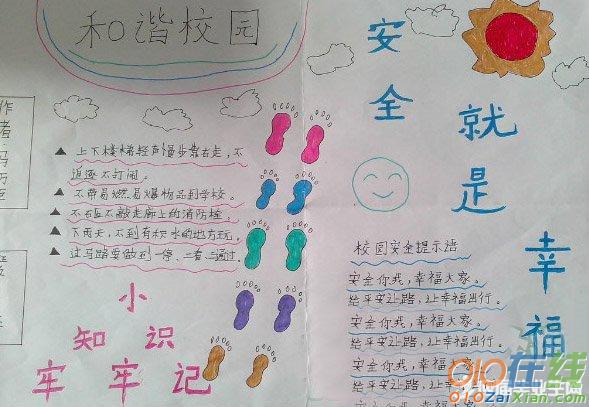 和谐校园
作
者
冯
万
▲ 上下楼梯轻声慢步靠右走，不
追逐不打闹。
▲ 不带易燃易爆物品到学校。
▲ 不在乱敲走廊上的消防栓。
▲ 下雨天，不到有积水的地方玩。
▲ 过马路要做到一停、二看、三通过。
小
知识
牢牢记
安全
就是
幸福
校园安全提示语
安全你我，幸福大家。
给平安让路，让幸福出行。
安全你我，幸福大家。
给平安让路，让幸福出行。
安全你我，幸福大家。
给平安让路，让幸福出行。
010在线
010ZaiXian.com